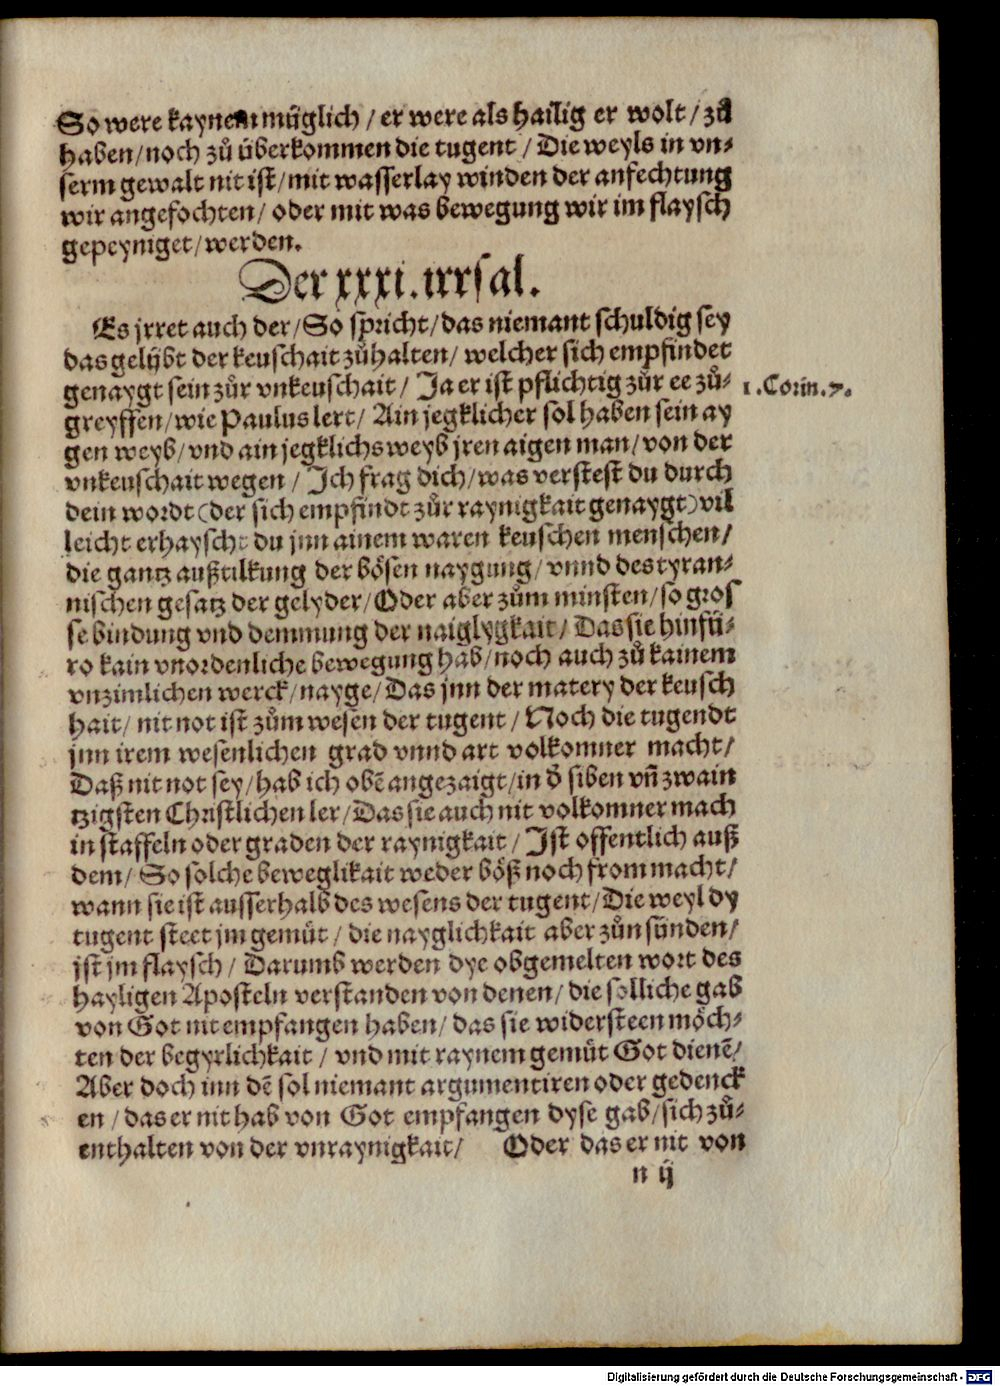 So were kaynem müglich / er were als hailig er wolt / zů
haben / noch zů überkommen die tugent / Die weyls in vn⸗
serm gewalt nit ist / mit wasserlay winden der anfechtung
wir angefochten / oder mit was bewegung wir im flaysch
gepeyniget / werden.
Der xxxi. irrsal.
Es jrret auch der / So spricht / das niemant schuldig sey
das gelübt der keuschait zůhalten / welcher sich empfindet
genaygt sein zůr vnkeuschait / Ja er ist pflichtig zůr ee zů⸗
greyffen / wie Paulus lert / Ain jegklicher sol haben sein ay
gen weyb / vnd ain jegklichs weyb jren aigen man / von der
vnkeuschait wegen / Ich frag dich / was verstest du durch
dein wordt (der sich empfindt zůr raynigkait genaygt) vil
leicht erhayscht du jnn ainem waren keuschen menschen /
die gantz außtilkung der bösen naygung / vnnd des tyran⸗
nischen gesatz der gelyder / Oder aber zům minsten / so gros
se bindung vnd demmung der naiglygkait / Das sie hinfü⸗
ro kain vnordenliche bewegung hab / noch auch zů kainem
vnzimlichen werck / nayge / Das jnn der matery der keusch
hait / nit not ist zům wesen der tugent / Noch die tugendt
jnn irem wesenlichen grad vnnd art volkomner macht /
Daß nit not sey / hab ich obē angezaigt / in ď siben vñ zwain
tzigsten Christlichen ler / Das sie auch nit volkomner mach
in staffeln oder graden der raynigkait / Ist offentlich auß
dem / So solche beweglikait weder böß noch from macht /
wann sie ist ausserhalb des wesens der tugent / Die weyl dy
tugent steet jm gemüt / die nayglichkait aber zůn sünden /
jst jm flaysch / Darumb werden dye obgemelten wort des
hayligen Aposteln verstanden von denen / die solliche gab
von Got nit empfangen haben / das sie widersteen möch⸗
ten der begyrlichkait / vnd mit raynem gemüt Got dienē /
Aber doch inn dē sol niemant argumentiren oder gedenck
en / das er nit hab von Got empfangen dyse gab / sich zů⸗
enthalten von der vnraynigkait / Oder das er nit von
n ij
1. Corin. 7.
Digitalisierung gefördert durch die Deutsche Forschungsgemeinschaft - DFG